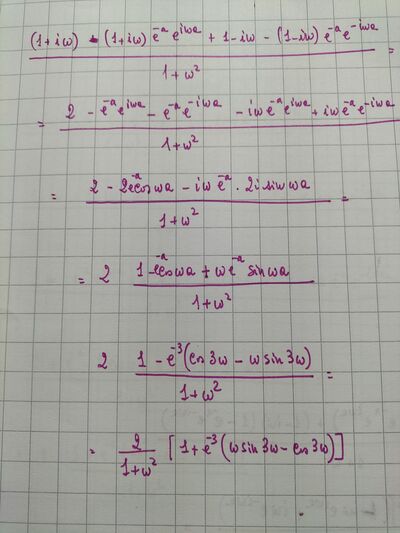 ((1+iω) - (1+iω) e^{-a} e^{iωa} + 1-iω - (1-iω) e^{-a} e^{-iωa}) / (1+ω²) =
= (2 - e^{-a} e^{iωa} - e^{-a} e^{-iωa} - iω e^{-a} e^{iωa} + iω e^{-a} e^{-iωa}) / (1+ω²)
= (2 - 2e^{-a} cos ωa - iω e^{-a} · 2i sin ωa) / (1+ω²) =
= 2 (1 - e^{-a} cos ωa + ω e^{-a} sin ωa) / (1+ω²)
2 (1 - e^{-3} (cos 3ω - ω sin 3ω)) / (1+ω²) =
= 2/(1+ω²) [1 + e^{-3} (ω sin 3ω - cos 3ω)]